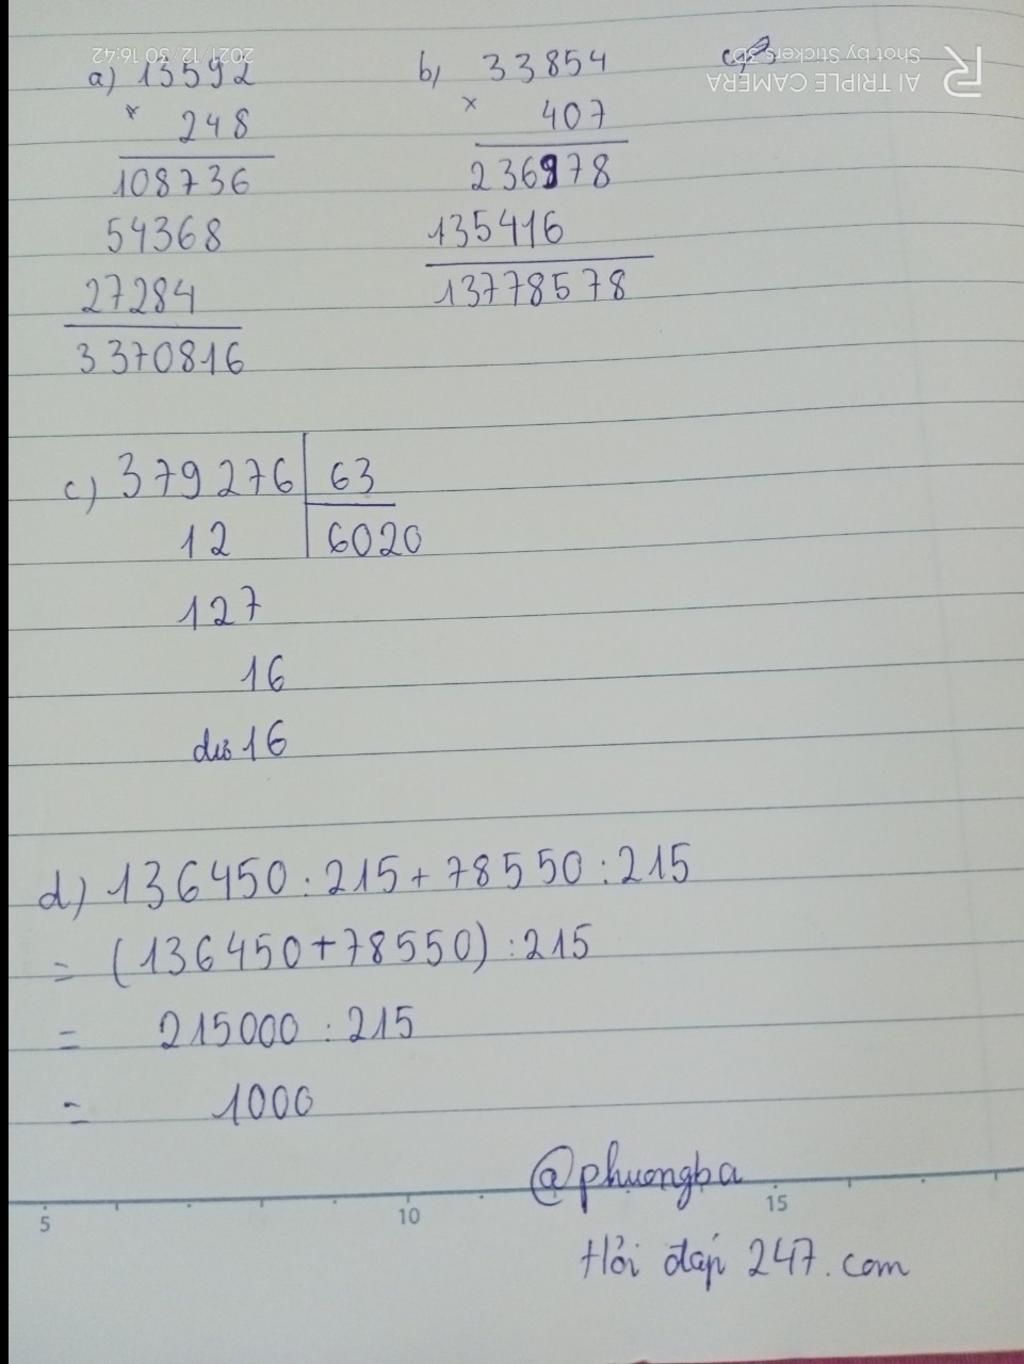 2021/12/30 16:42
Shot by Stickers 3D
AI TRIPLE CAMERA
a) 13592
x 248
108736
54368
27284
3370816
b) 33854
x 407
236978
135416
13778578
c) 379276 63
12 6020
127
16
dư 16
d) 136450 : 215 + 78550 : 215
= (136450 + 78550) : 215
= 215000 : 215
= 1000
@phuongba
5 10 15
Hỏi đáp 247.com